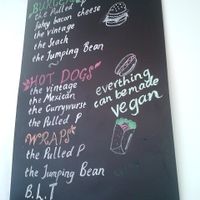 BURGERS
the Pulled P
bacon cheese
the vintage
the Snack
the Jumping Bean
HOT DOGS
the vintage
the Mexican
the Currywurst
the Pulled P
everthing
can be made
vegan
WRAPS
the Pulled P
the Jumping Bean
B.L.T